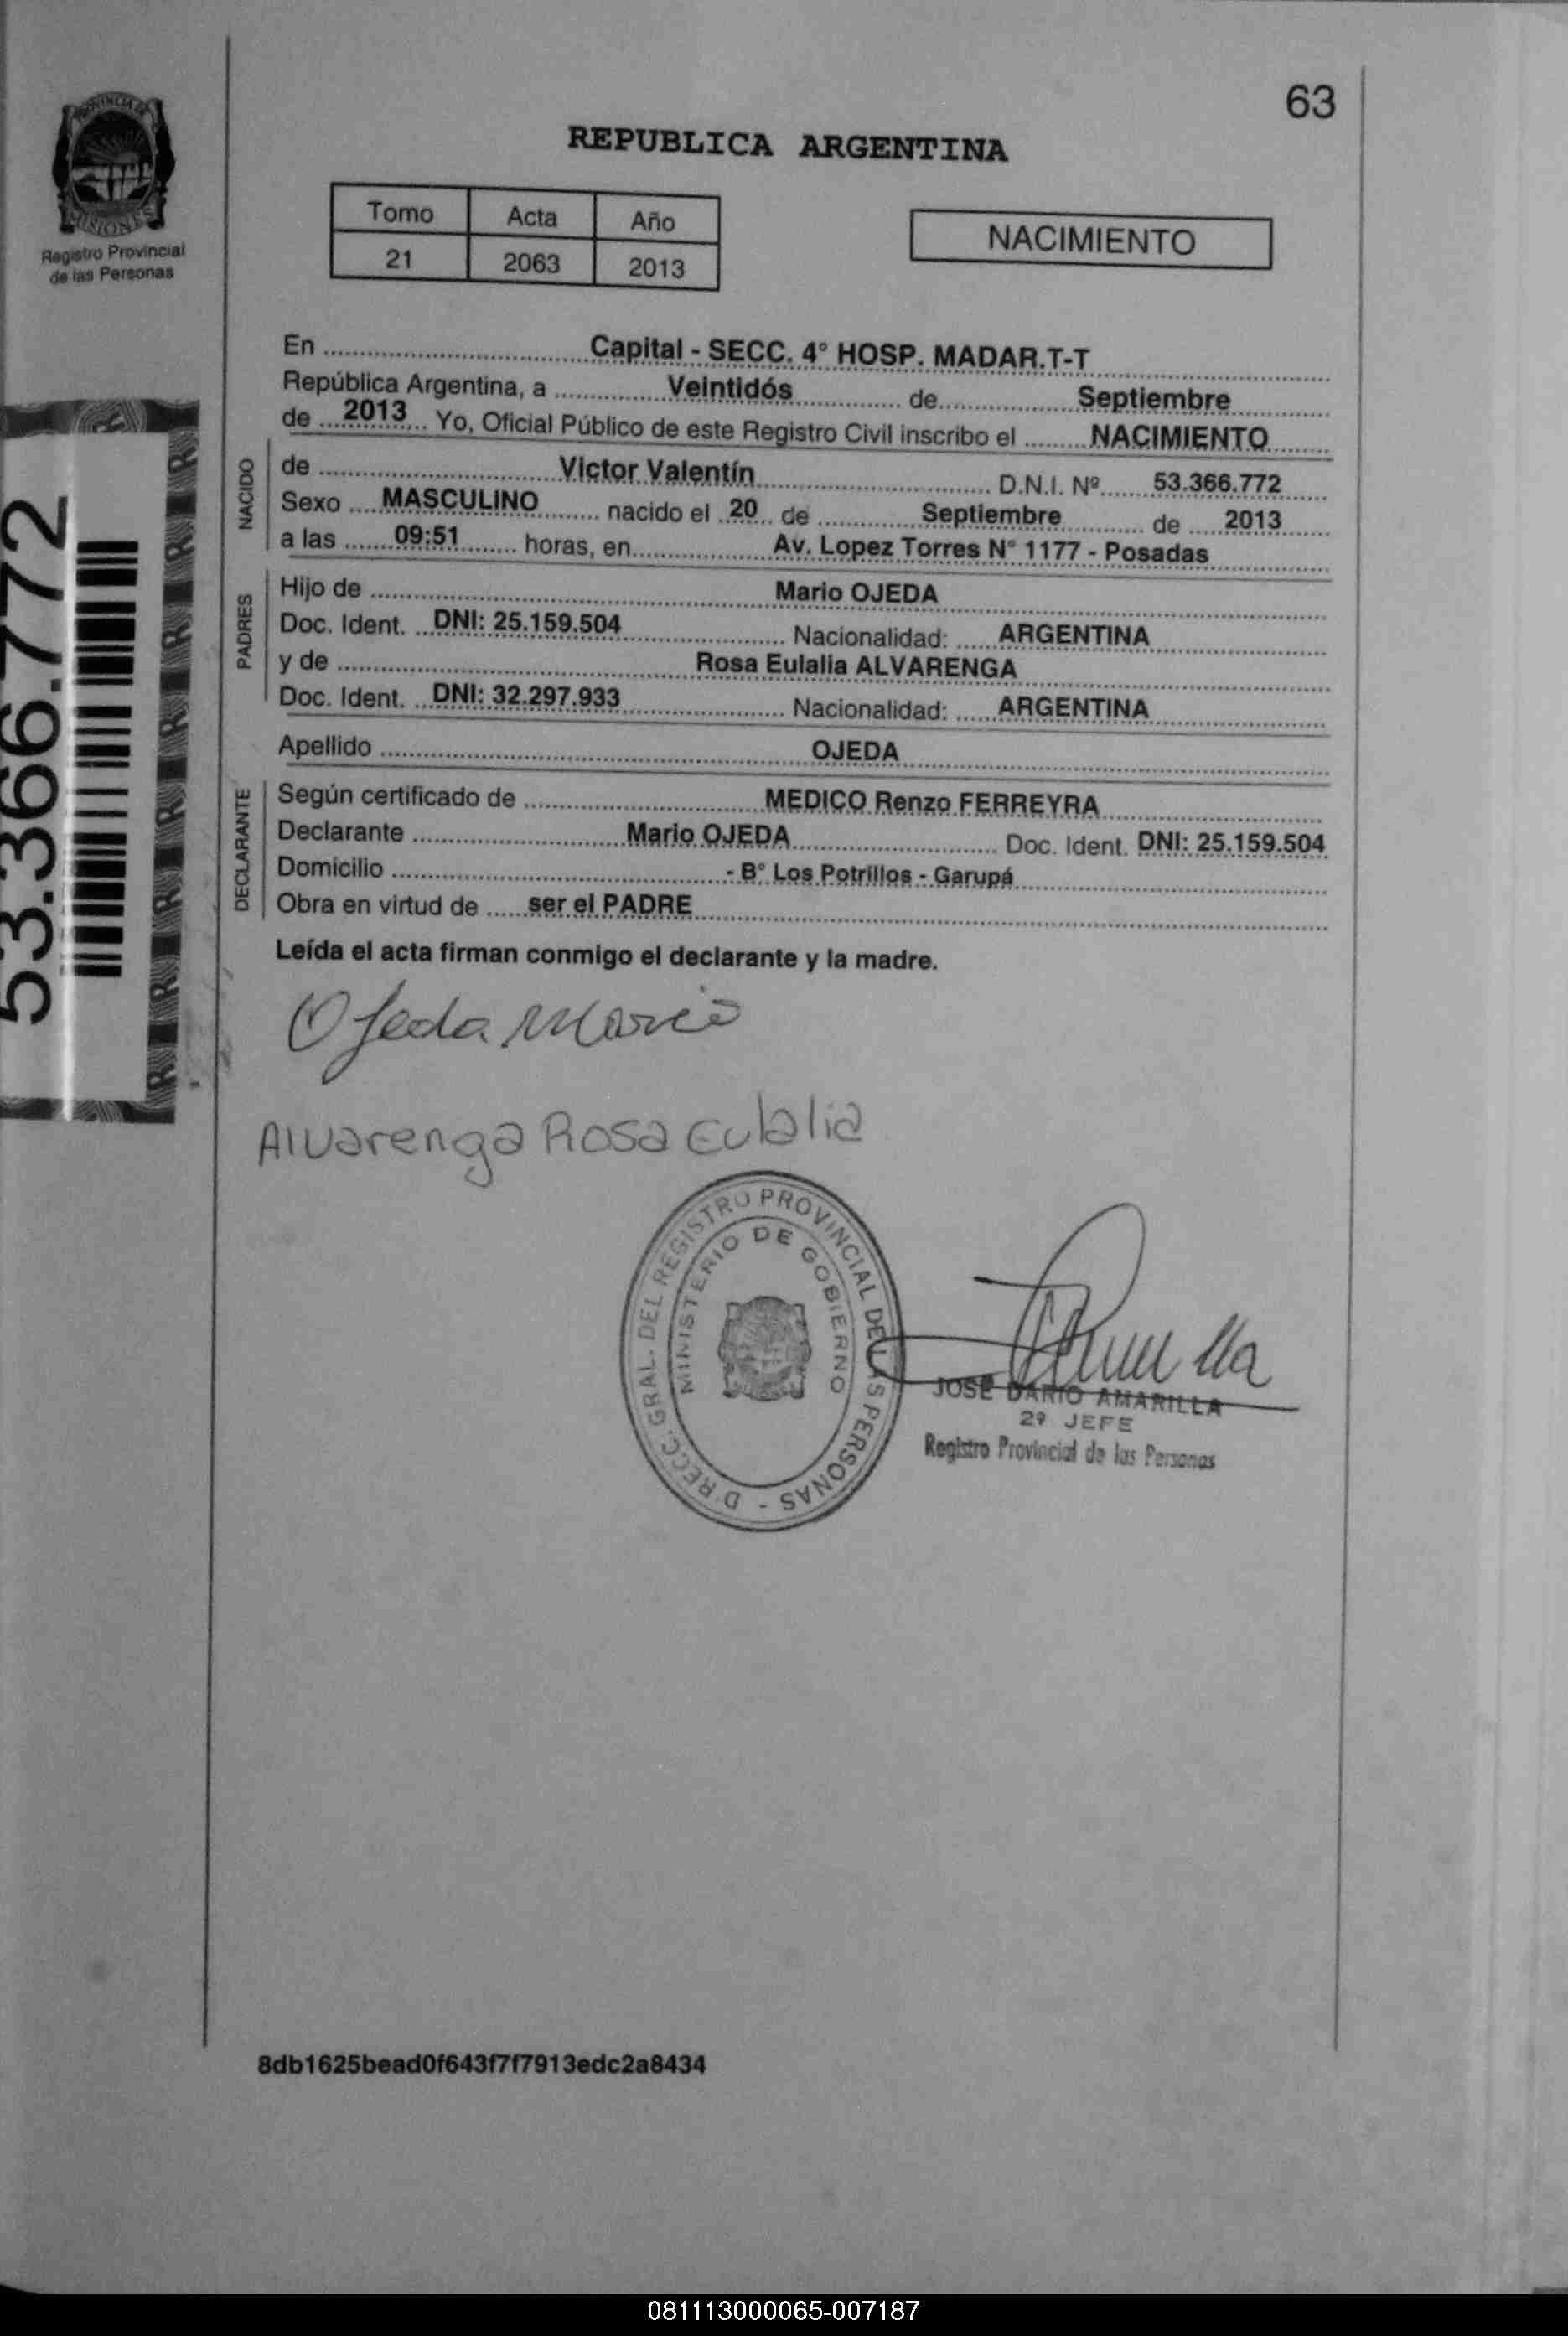 63
PROVINCIA DE
MISIONES
Registro Provincial
de las Personas
REPUBLICA ARGENTINA
Tomo Acta Año
21 2063 2013
NACIMIENTO
En Capital - SECC. 4° HOSP. MADAR.T-T
República Argentina, a Veintidós de Septiembre
de 2013 Yo, Oficial Público de este Registro Civil inscribo el NACIMIENTO
NACIDO
de Victor Valentín D.N.I. Nº 53.366.772
Sexo MASCULINO nacido el 20 de Septiembre de 2013
a las 09:51 horas, en Av. Lopez Torres N° 1177 - Posadas
PADRES
Hijo de Mario OJEDA
Doc. Ident. DNI: 25.159.504 Nacionalidad: ARGENTINA
y de Rosa Eulalia ALVARENGA
Doc. Ident. DNI: 32.297.933 Nacionalidad: ARGENTINA
Apellido OJEDA
DECLARANTE
Según certificado de MEDICO Renzo FERREYRA
Declarante Mario OJEDA Doc. Ident. DNI: 25.159.504
Domicilio - B° Los Potrillos - Garupá
Obra en virtud de ser el PADRE
Leída el acta firman conmigo el declarante y la madre.
53.366.772
Ojeda Mario
Alvarenga Rosa Eulalia
DIRECC. GRAL. DEL REGISTRO PROVINCIAL DE LAS PERSONAS -
MINISTERIO DE GOBIERNO
JOSE DARIO AMARILLA
2º JEFE
Registro Provincial de las Personas
8db1625bead0f643f7f7913edc2a8434
081113000065-007187